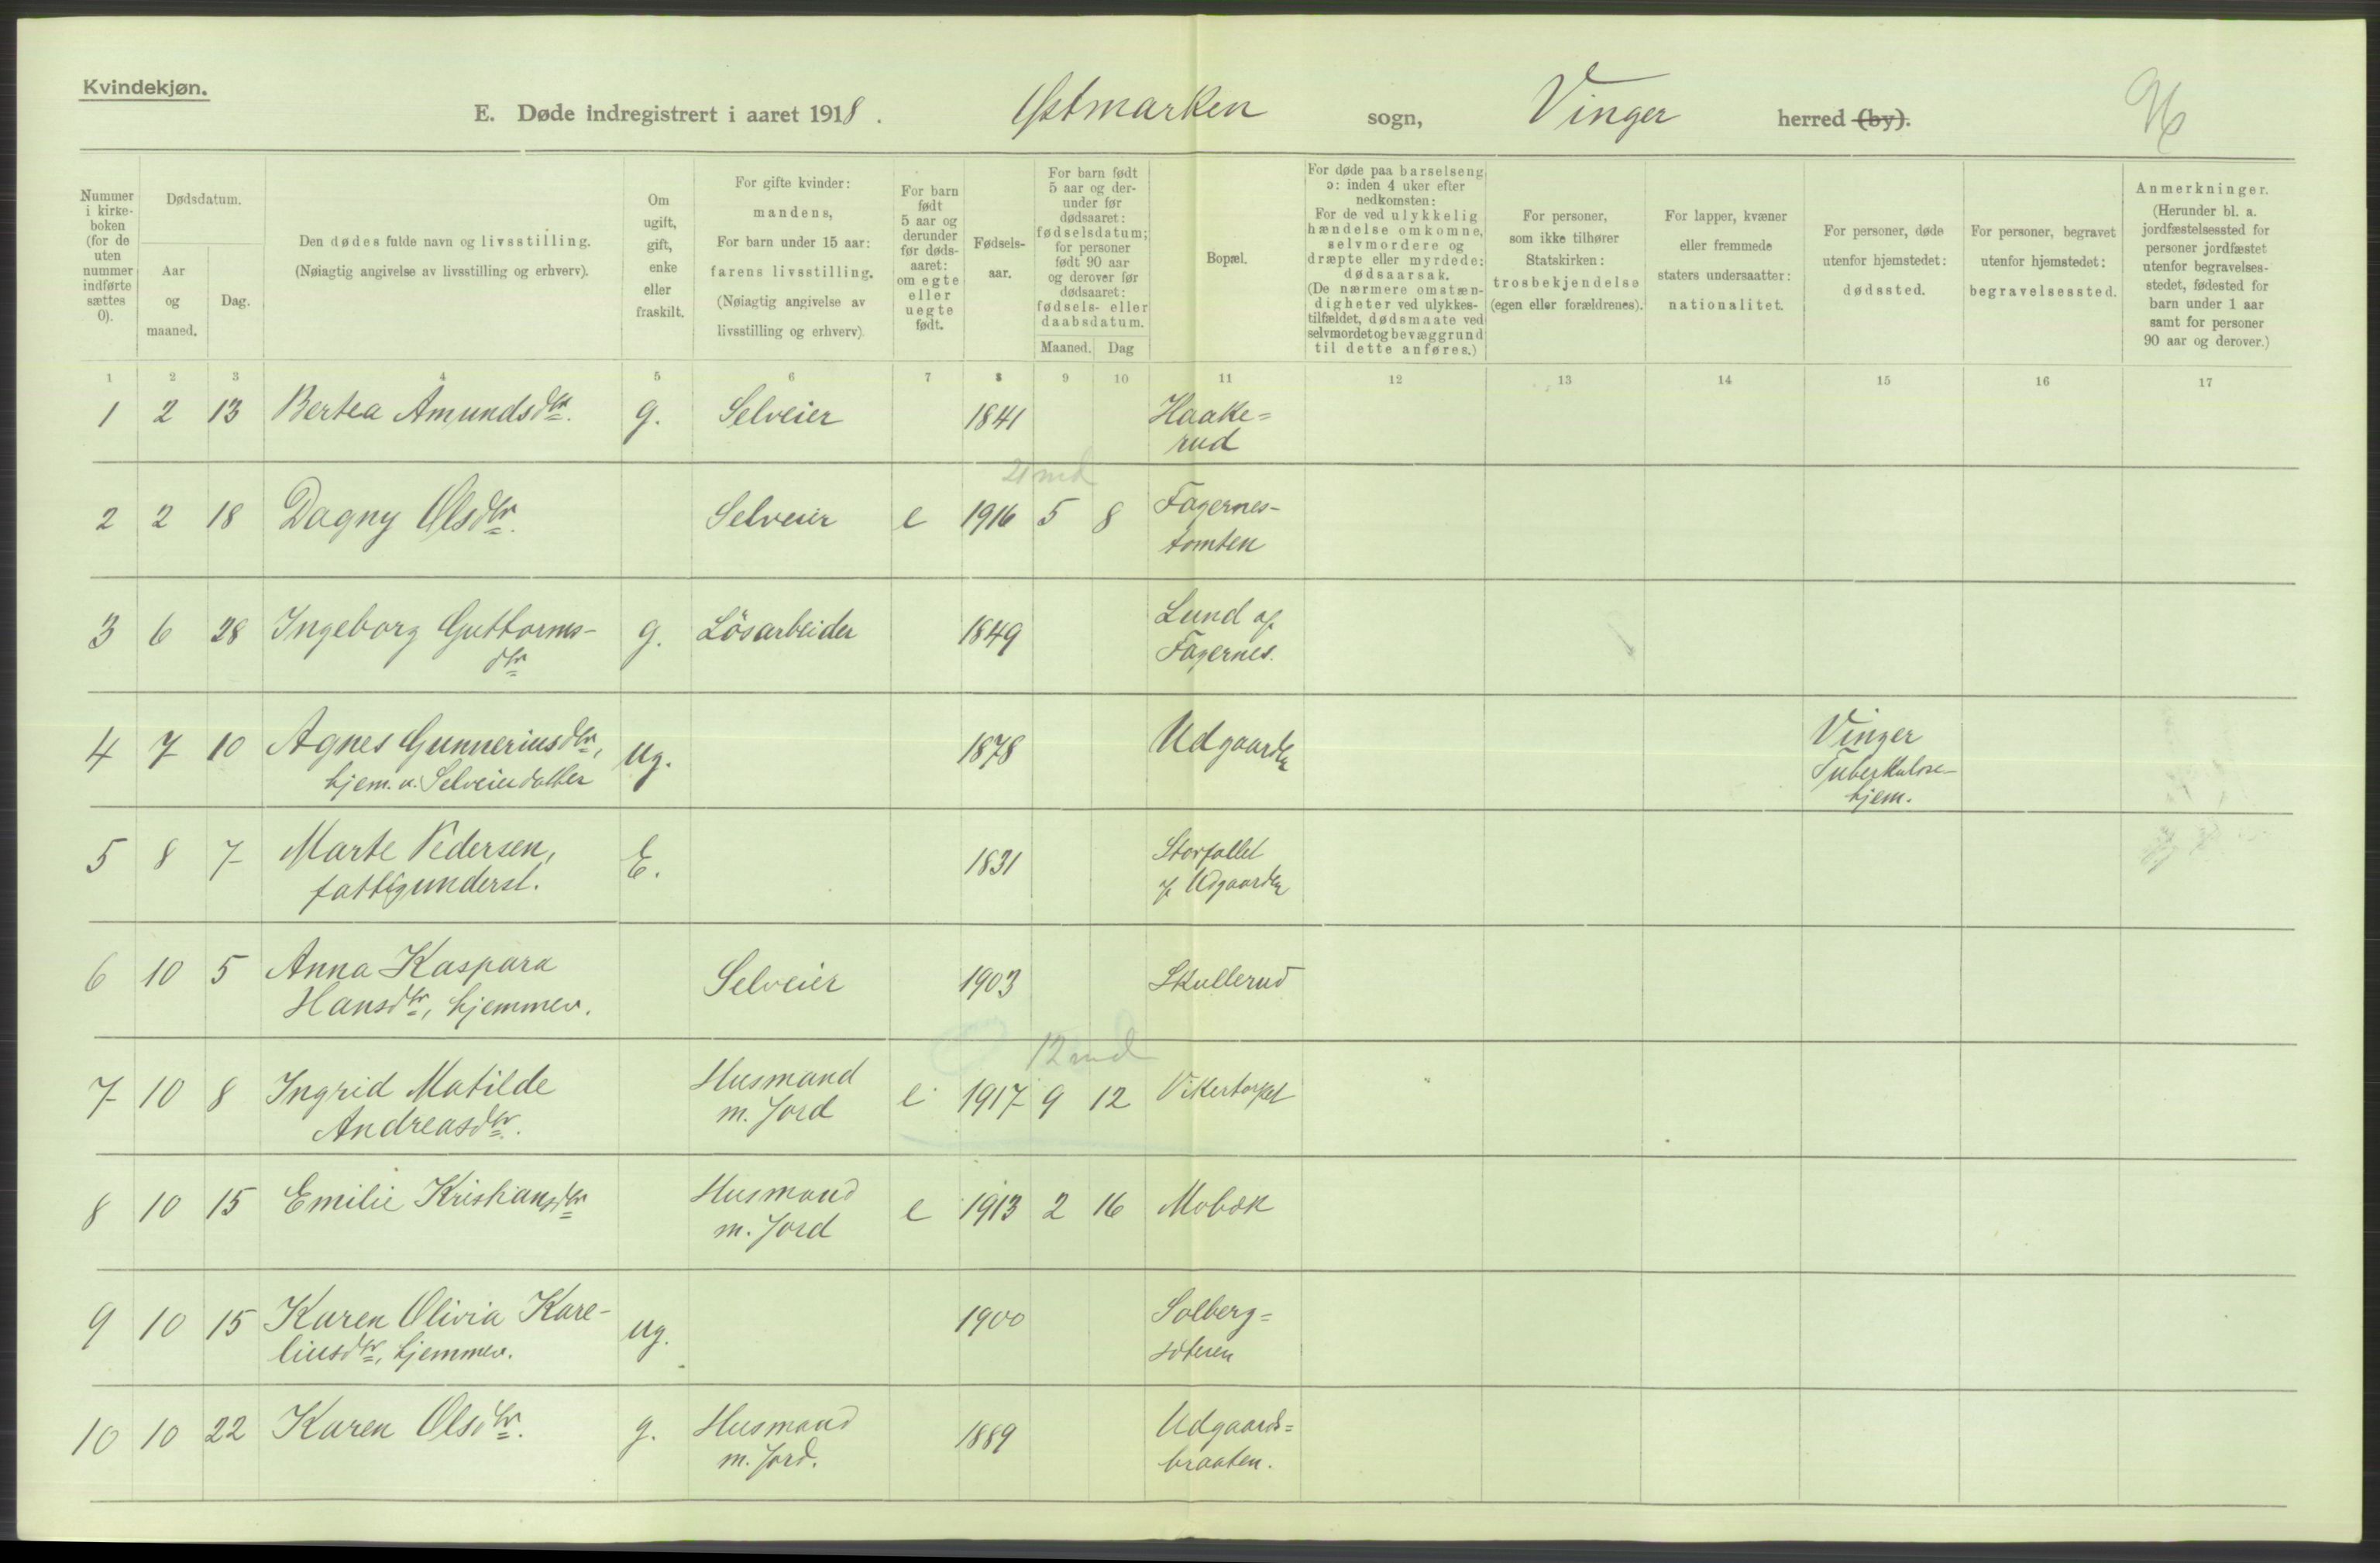 Kvindekjøn.
E. Døde indregistrert i aaret 1918. Østmarken sogn, Vinger herred (by).
Nummer i kirke- boken (for de uten nummer indførte sættes 0).
Dødsdatum.
Aar og maaned.
Dag.
Den dødes fulde navn og livsstilling.
(Nøiagtig angivelse av livsstilling og erhverv).
Om ugift, gift, enke eller fraskilt.
For gifte kvinder:
mandens,
For barn under 15 aar:
farens livsstilling.
(Nøiagtig angivelse av
livsstilling og erhverv)
For barn født 5 aar og derunder før døds- aaret: om egte eller uegte født.
Fødsels-
aar.
For barn født 5 aar og der- under før dødsaaret: fødselsdatum; for personer født 90 aar og derover før dødsaaret: fødsels- eller daabsdatum.
Maaned. Dag
Bopæl.
For døde paa barselseng ɔ: inden 4 uker efter nedkomsten:
For de ved ulykkelig hændelse omkomne, selvmordere og dræpte eller myrdede: dødsaarsak.
(De nærmere omstæn- digheter ved ulykkes- tilfældet, dødsmaate ved selvmordet og bevæggrund til dette anføres.)
For personer,
som ikke tilhører
Statskirken:
trosbekjendelse
(egen eller forældrenes).
For lapper, kvæner
eller fremmede
staters undersaatter:
nationalitet.
For personer, døde
utenfor hjemstedet:
dødssted.
For personer, begravet
utenfor hjemstedet:
begravelsessted.
Anmerkninger.
(Herunder bl. a. jordfæstelsessted for personer jordfæstet utenfor begravelses- stedet, fødested for barn under 1 aar samt for personer 90 aar og derover.)
1 2 3 4 5 6 7 8 9 10 11 12 13 14 15 16 17
1 2 13 Bertea Amundsdtr. g. Selveier 1841 Haake=
rud
21 md
2 2 18 Dagny Olsdtr. Selveier e 1916 5 8 Fagernes-
tomten
3 6 28 Ingeborg Guttorms-
dtr
g. Lösarbeider 1849 Lund af
Fagernes.
4 7 10 Agnes Gunneriusdtr,
hjem. v. Selveierdatter
ug. 1878 Udgaarden
Vinger
Tuberkulose-
hjem.
5 8 7 Marte Pedersen,
fattigunderst.
E. 1831 Storfallet
f Udgaarden
6 10 5 Anna Kaspara
Hansdtr, hjemmev.
Selveier 1903 Skullerud
12 md
7 10 8 Ingrid Matilde
Andreasdtr.
Husmand
m. Jord
e 1917 9 12 Vikertorpet
8 10 15 Emilie Kristiansdtr Husmand
m. Jord
e 1913 2 16 Mobæk
9 10 15 Karen Olivia Kare-
liusdtr, hjemmev.
ug. 1900 Solberg=
sæteren
10 10 22 Karen Olsdtr. g. Husmand
m. Jord.
1889 Udgaards=
braaten.